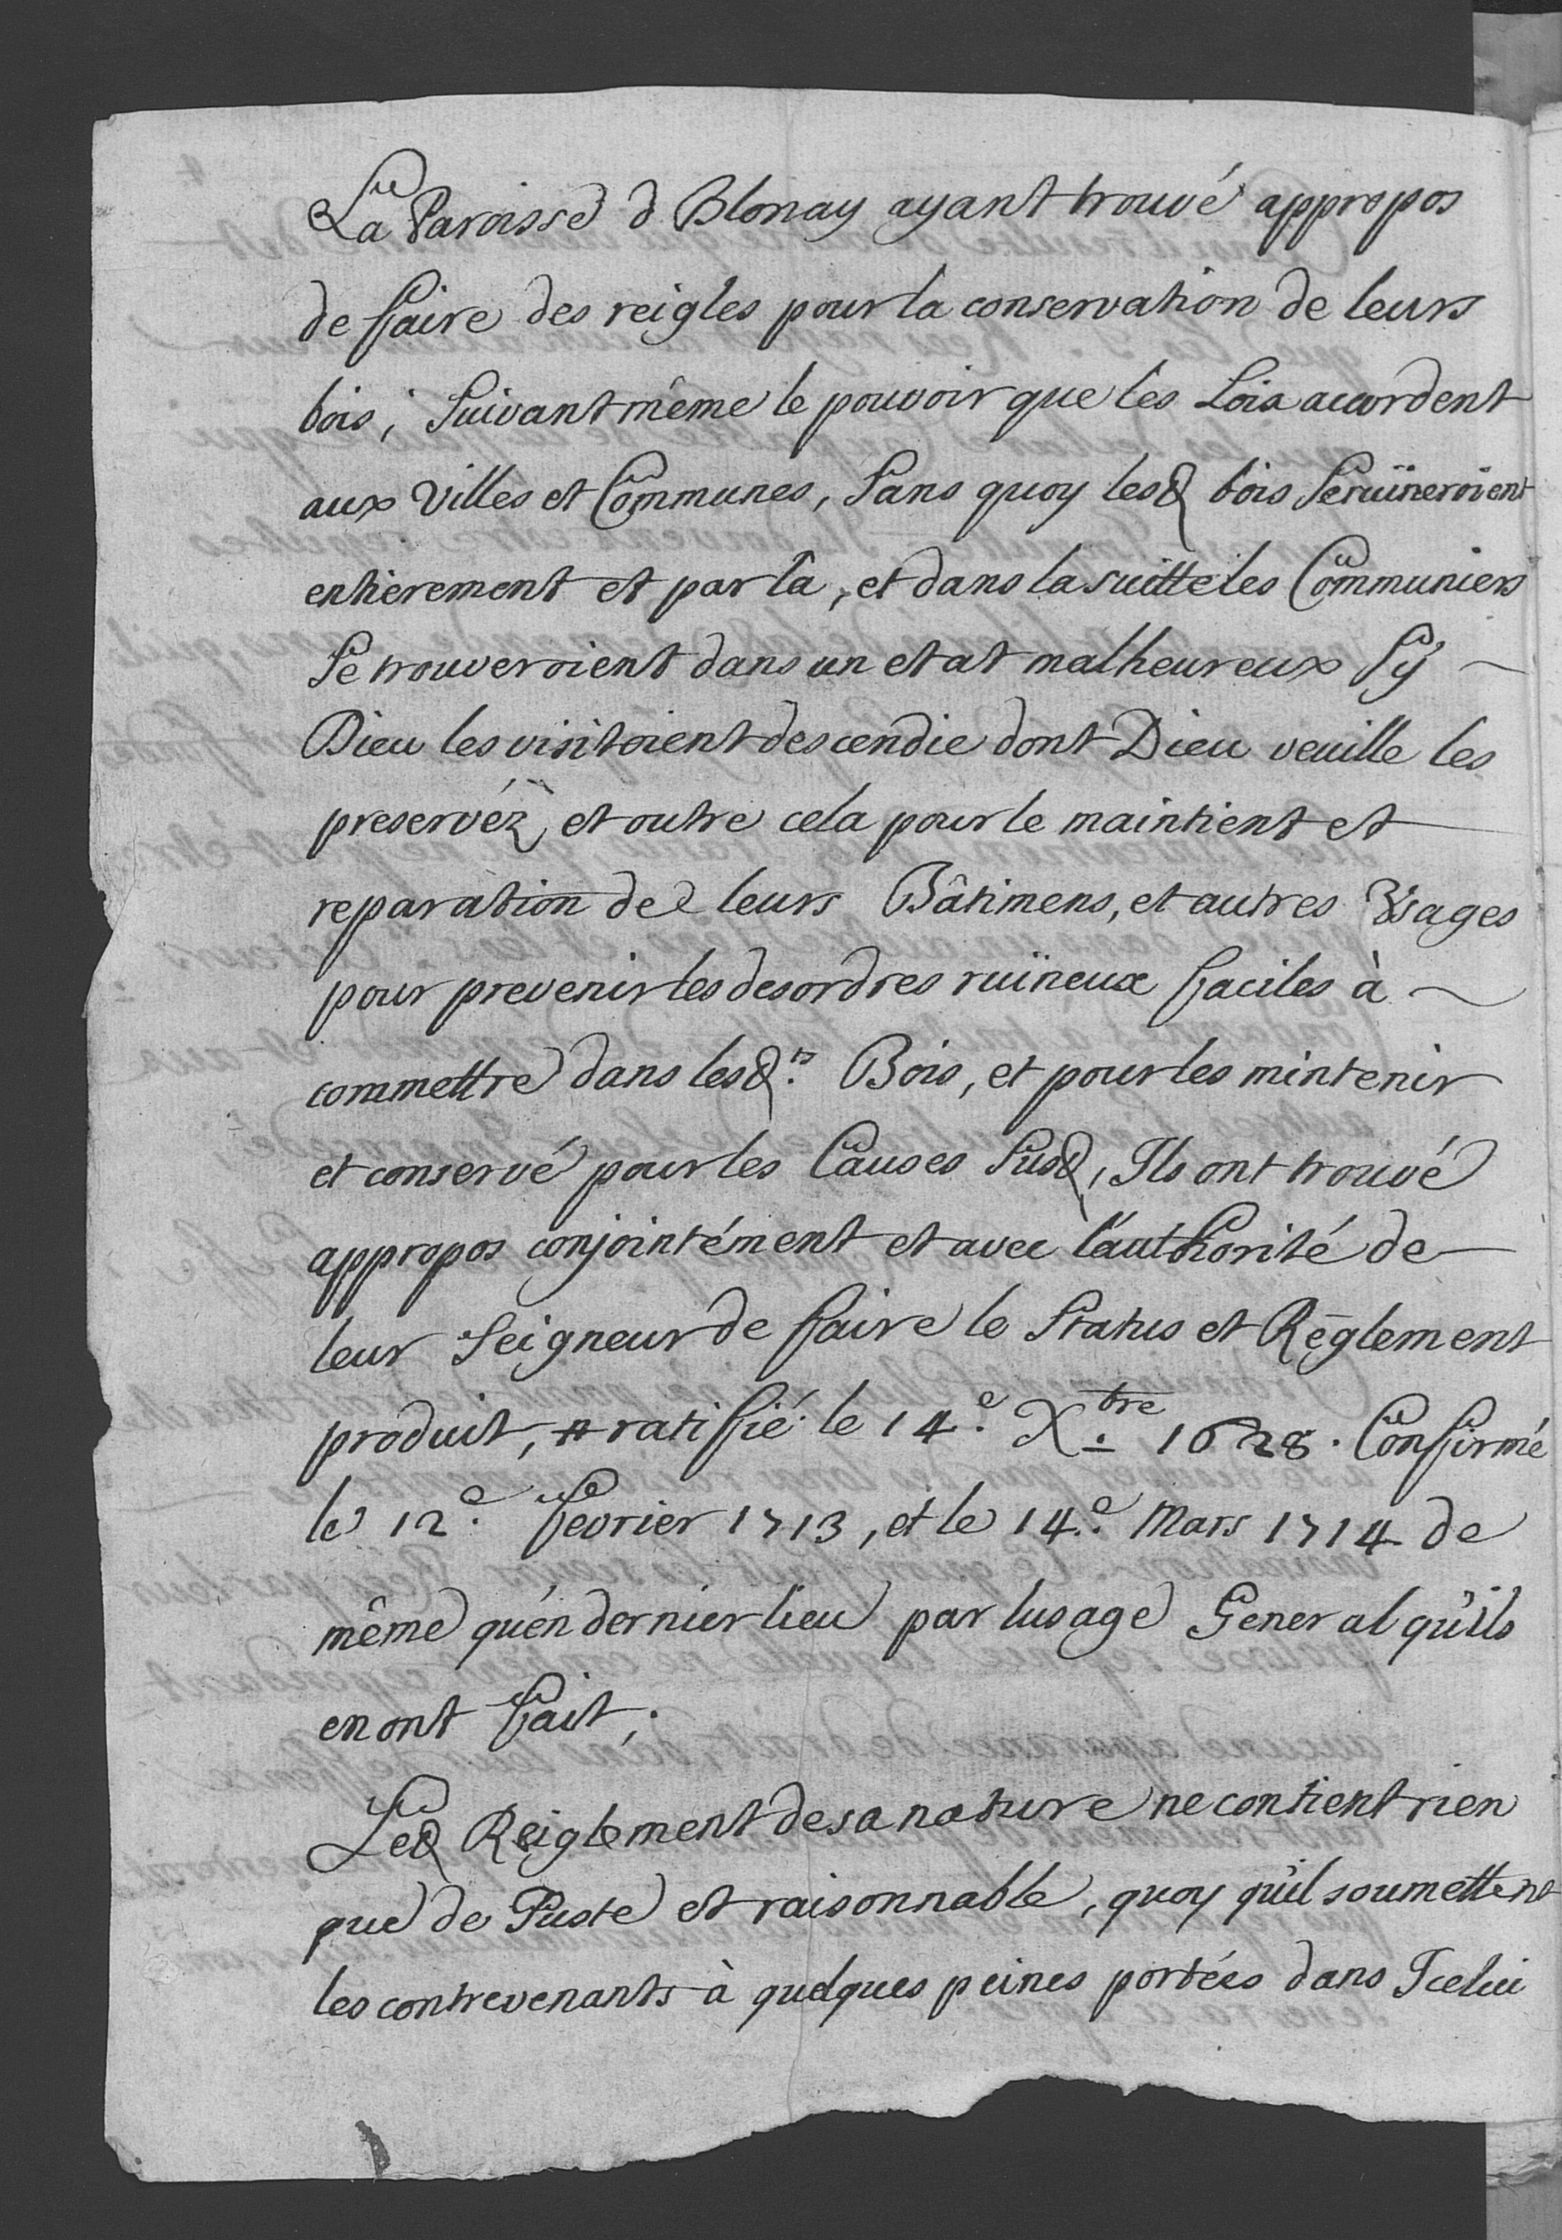 La Paroisse d Blonay ayant trouvé appropos
de faire des reigles pour la conservation de leurs
bois; Suivant même le pouvoir que les Loix accordent
aux Villes et Communes, Sans quoy lesd bois Se ruïneroient
entierement et par la, et dans la suitte les Communiers
Se trouveroient dans un etat malheureux Sy
Dieu les visitoient descendie dont Dieu veuille les
preservéz, et outre cela pour le maintient et
reparation de leurs Bâtimens, et autres Usages
pour prevenir les desordres ruïneux faciles à
commettre dans lesd.ts Bois, et pour les mintenir
et conservé pour les Causes Susd, Ils ont trouvé
appropos conjointément et avec l'authorité de
leur Seigneur de faire le Status et Règlement
produit, ratiffié le 14.e X.bre 1628. Confirmé
le 12.e Fevrier 1713, et le 14.e Mars 1714 de
même qu'en dernier lieu par lusage General qu'ils
en ont fait;
Led Reiglement de sa nature ne contient rien
que de Juste et raisonnable, quoy qu'il soumettent
les contrevenants à quelques peines portées dans Icelui